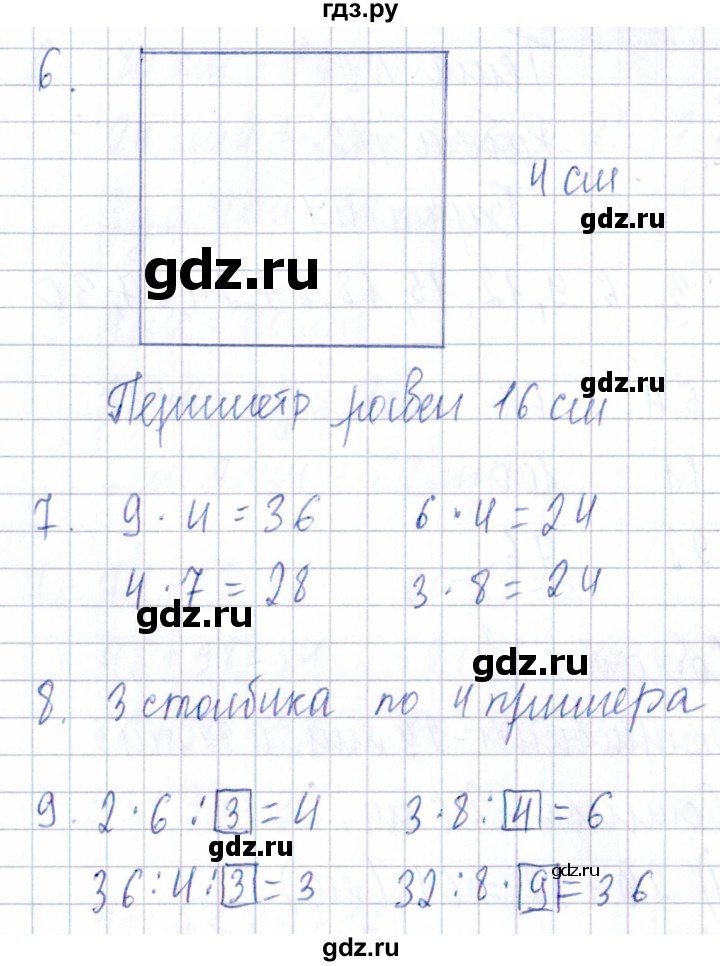 гдз.ру
6.
4 см
gdz.ru
gdz.ru
gdz.ru
Периметр равен 16 см
7. 9 · 4 = 36 6 · 4 = 24
4 · 7 = 28 3 · 8 = 24
gdz.ru
gdz.ru
8. 3 столбика по 4 примера
9. 2 · 6 : 3 = 4 3 · 8 : 4 = 6
gdz.ru
gdz.ru
36 : 4 : 3 = 3 32 : 8 · 9 = 36
gdz.ru